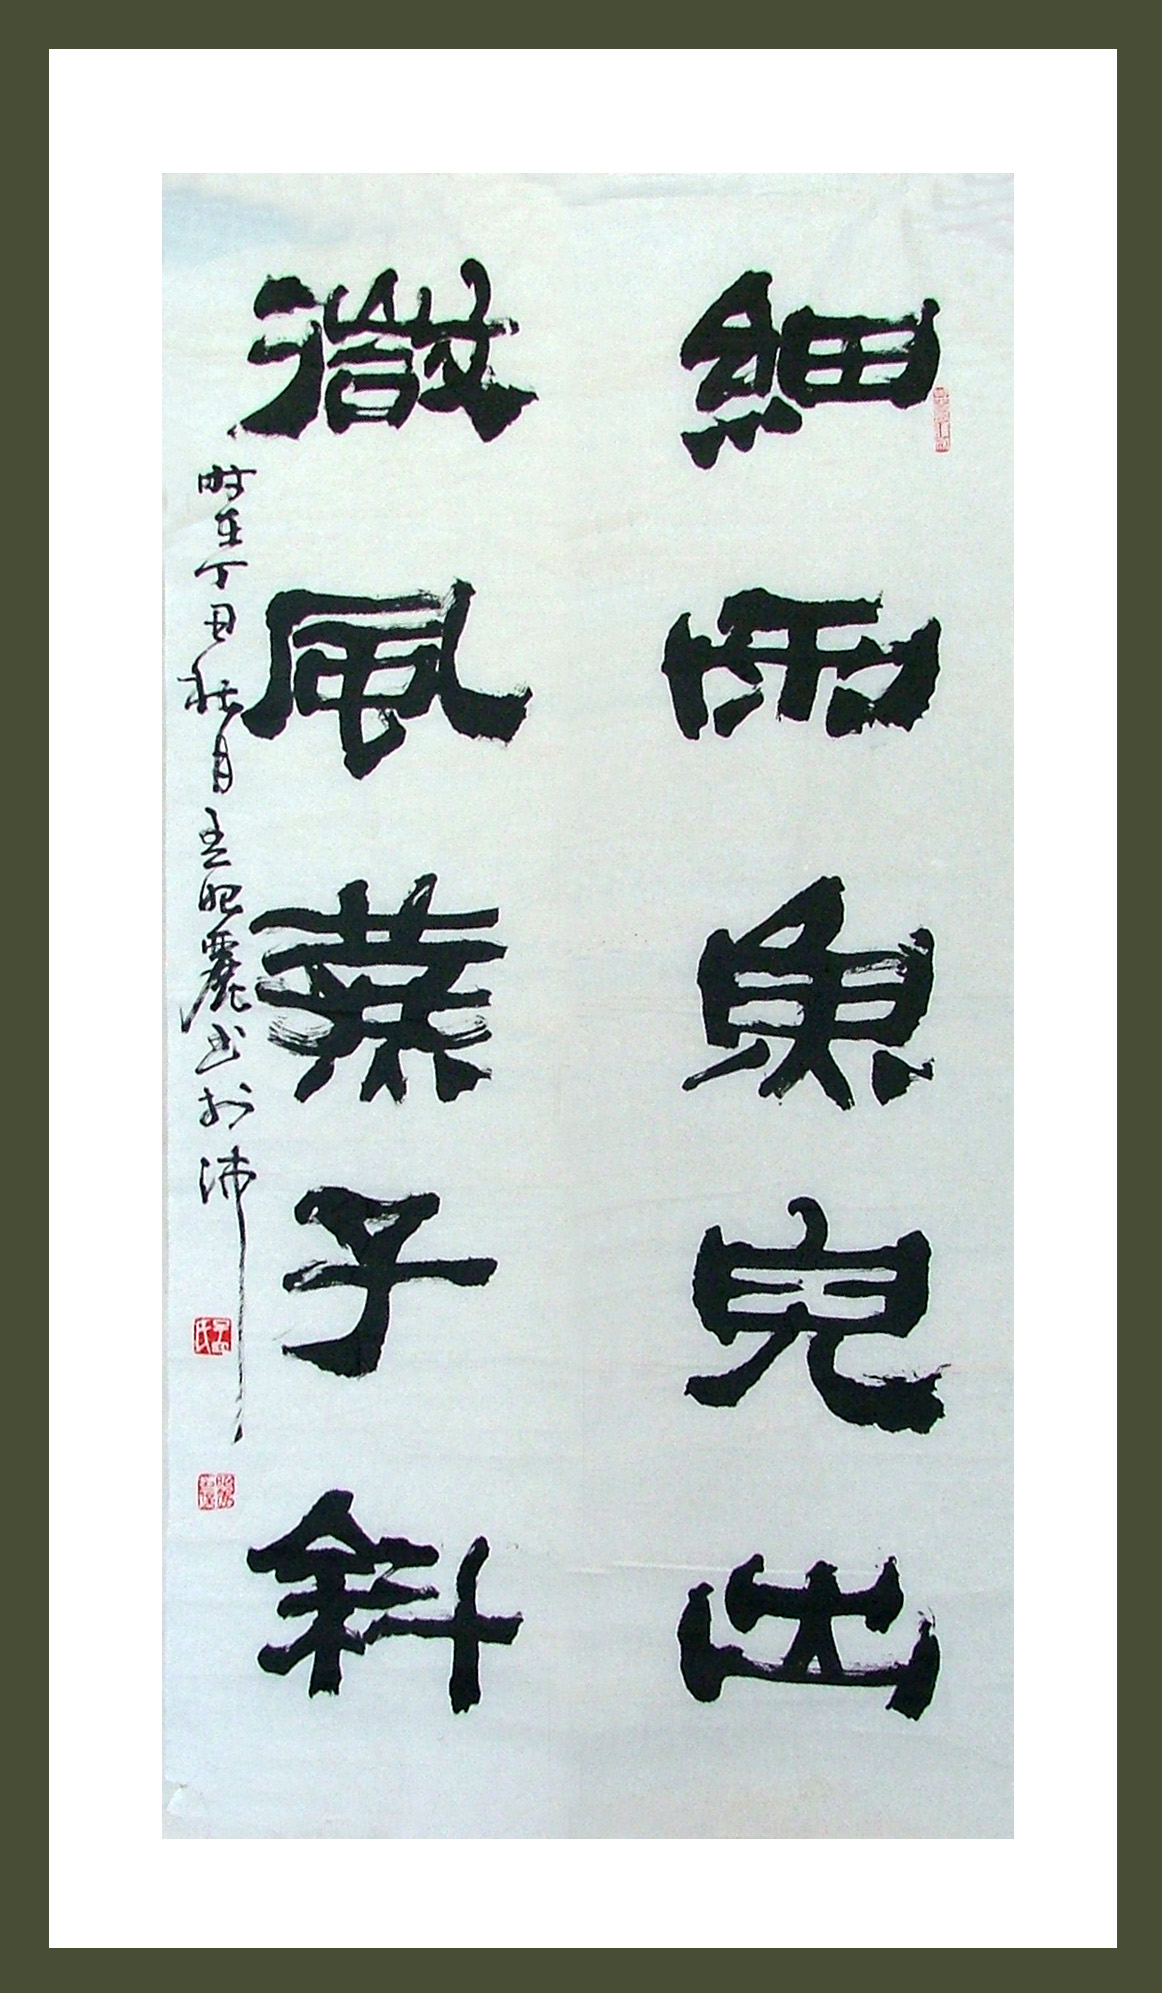 細雨魚兒出
微風燕子斜
时在丁丑秋月王昭麗书於沛